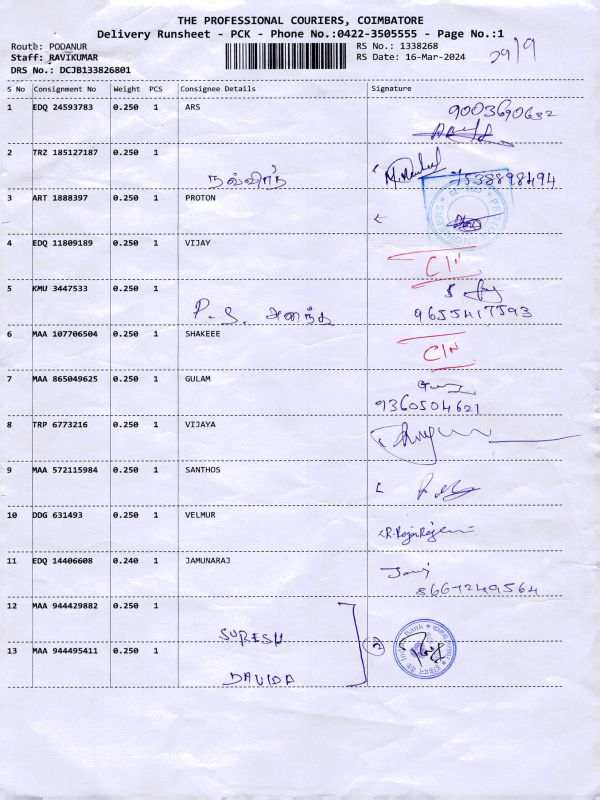 THE PROFESSIONAL COURIERS, COIMBATORE
Delivery Runsheet - PCK - Phone No.:0422-3505555 - Page No.:1
Route: PODANUR RS No.: 1338268 29/9
Staff: RAVIKUMAR RS Date: 16-Mar-2024
DRS No.: DCJB133826801
S No Consignment No Weight PCS Consignee Details Signature
1 EDQ 24593783 0.250 1 ARS 9003690632
2 TRZ 185127187 0.250 1
7538898494
3 ART 1888397 0.250 1 PROTON
4 EDQ 11809189 0.250 1 VIJAY
C/N
5 KMU 3447533 0.250 1
P. S. ஆனந்த 9655417593
6 MAA 107706504 0.250 1 SHAKEEE
C/N
7 MAA 865049625 0.250 1 GULAM
9360504621
8 TRP 6773216 0.250 1 VIJAYA
9 MAA 572115984 0.250 1 SANTHOS
10 DDG 631493 0.250 1 VELMUR
11 EDQ 14406608 0.240 1 JAMUNARAJ
8667249564
12 MAA 944429882 0.250 1
SURESH
13 MAA 944495411 0.250 1 2
DAVIDA